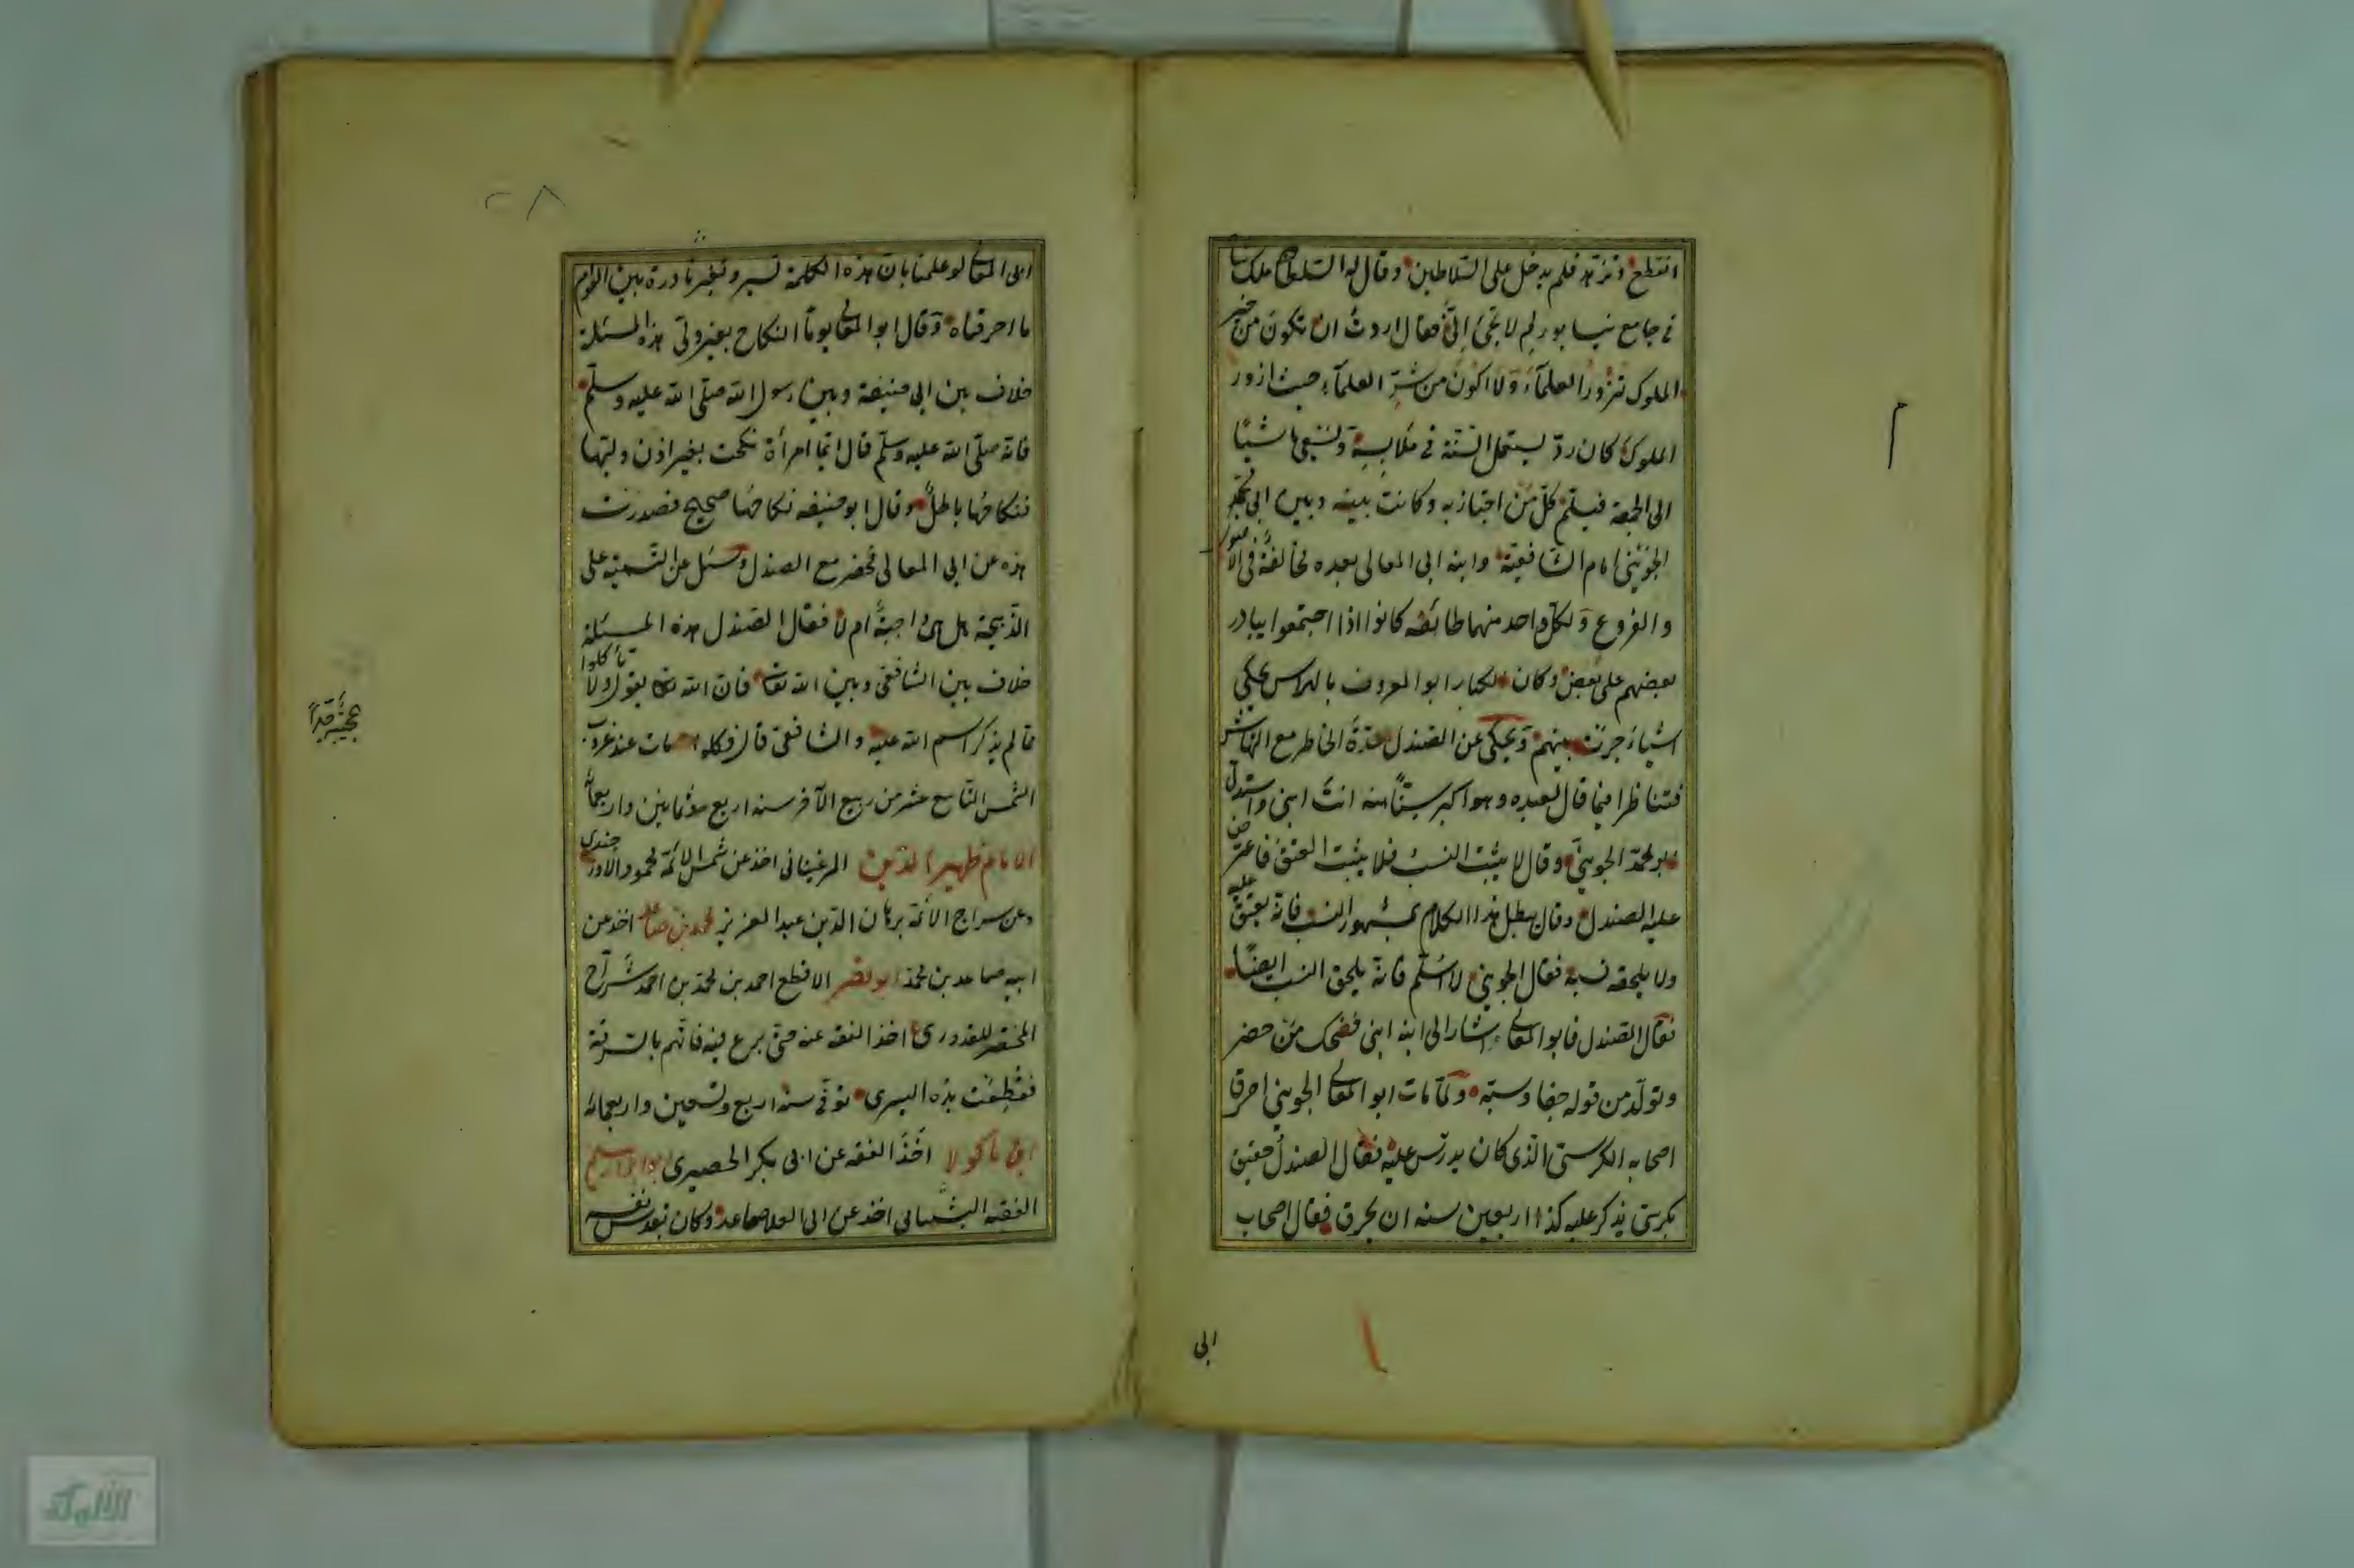 انقطع وتزهد فلم يدخل على السلاطين وقال له السلطان ملك شاه
في جامع نيسابور لم لا تجئ إليّ فقال اردت ان تكون من خير
الملوك تزور العلماء ولا اكون من شر العلماء حيث ازور
الملوك كان يستعمل السنة في ملابسه
الى الجمعة فيسلم كل من اجتاز به وكانت بينه وبين ابي محمد
الجويني امام الشافعية وابنه ابى المعالى بعده مخالفة في الاصول
والفروع ولكل واحد منهما طائفه كانوا اذا اجتمعوا يبادر
بعضهم على بعض وكان
اشياء جرت بينهم ويحكى عن الصندل حدة الخاطر مع
فتناظرا فيما قال لعبده وهو اكبر سنا منه انت ابنى واستدل
ابو محمد الجويني وقال لا يثبت النسب فلا يثبت العتق فاعترض
عليه الصندل وقال يبطل هذا الكلام بمشهور النسب فانه يعتق عليه
ولا يلحقه نسبه فقال الجويني لا اسلم فانه يلحق النسب ايضًا
فقال الصندل فابو المعالى واشار الى ابنه ابنى فضحك من حضر
وتولد من قوله جفا وسبّه ولما مات ابو المعالى الجويني احرق
اصحابه الكرسي الذى كان يدرس عليه فقال الصندل حقيق
بكرسي يذكر عليه كذا اربعين سنه ان يحرق فقال اصحاب
ابى
ابى المعالى لو علمنا بان هذه الكلمة تسير وتبقى نادرة بين القوم
ما احرقناه وقال ابو المعالى يوما النكاح بغير ولى هذه المسئلة
خلاف بين ابى حنيفة وبين رسول الله صلى الله عليه وسلم
فانه صلى الله عليه وسلم قال ايما امرأة نكحت بغير اذن وليها
فنكاحها باطل وقال ابو حنيفه نكاحها صحيح فصدرت
هذه عن ابى المعالى فحضر مع الصندل وسئل عن التسمية على
الذبيحة هل هى واجبة ام لا فقال الصندل هذه المسئلة
خلاف بين الشافعى وبين الله تعا فان الله تعا يقول ولا تأكلوا
مما لم يذكر اسم الله عليه والشافعى قال فكلوا مات عند غروب
الشمس التاسع عشر من ربيع الآخر سنه اربع وثمانين واربعمائه
الامام ظهير الدين المرغينانى اخذ عن شمس الائمة محمود الاوزجندى
وعن سراج الائمة برهان الدين عبد العزيز محمد بن صاعد اخذ عن
ابيه صاعد بن محمد ابو نصر الاقطع احمد بن محمد بن احمد شرّاح
المختصر للقدورى اخذ الفقه عنه حتى برع فيه فاتهم بالسرقة
فقطعت يده اليسرى توفى سنه اربع وتسعين واربعمائه
ابن ماكولا اخذ الفقه عن ابى بكر الحصيرى
الفقه اخذ عن ابى العلا صاعد وكان